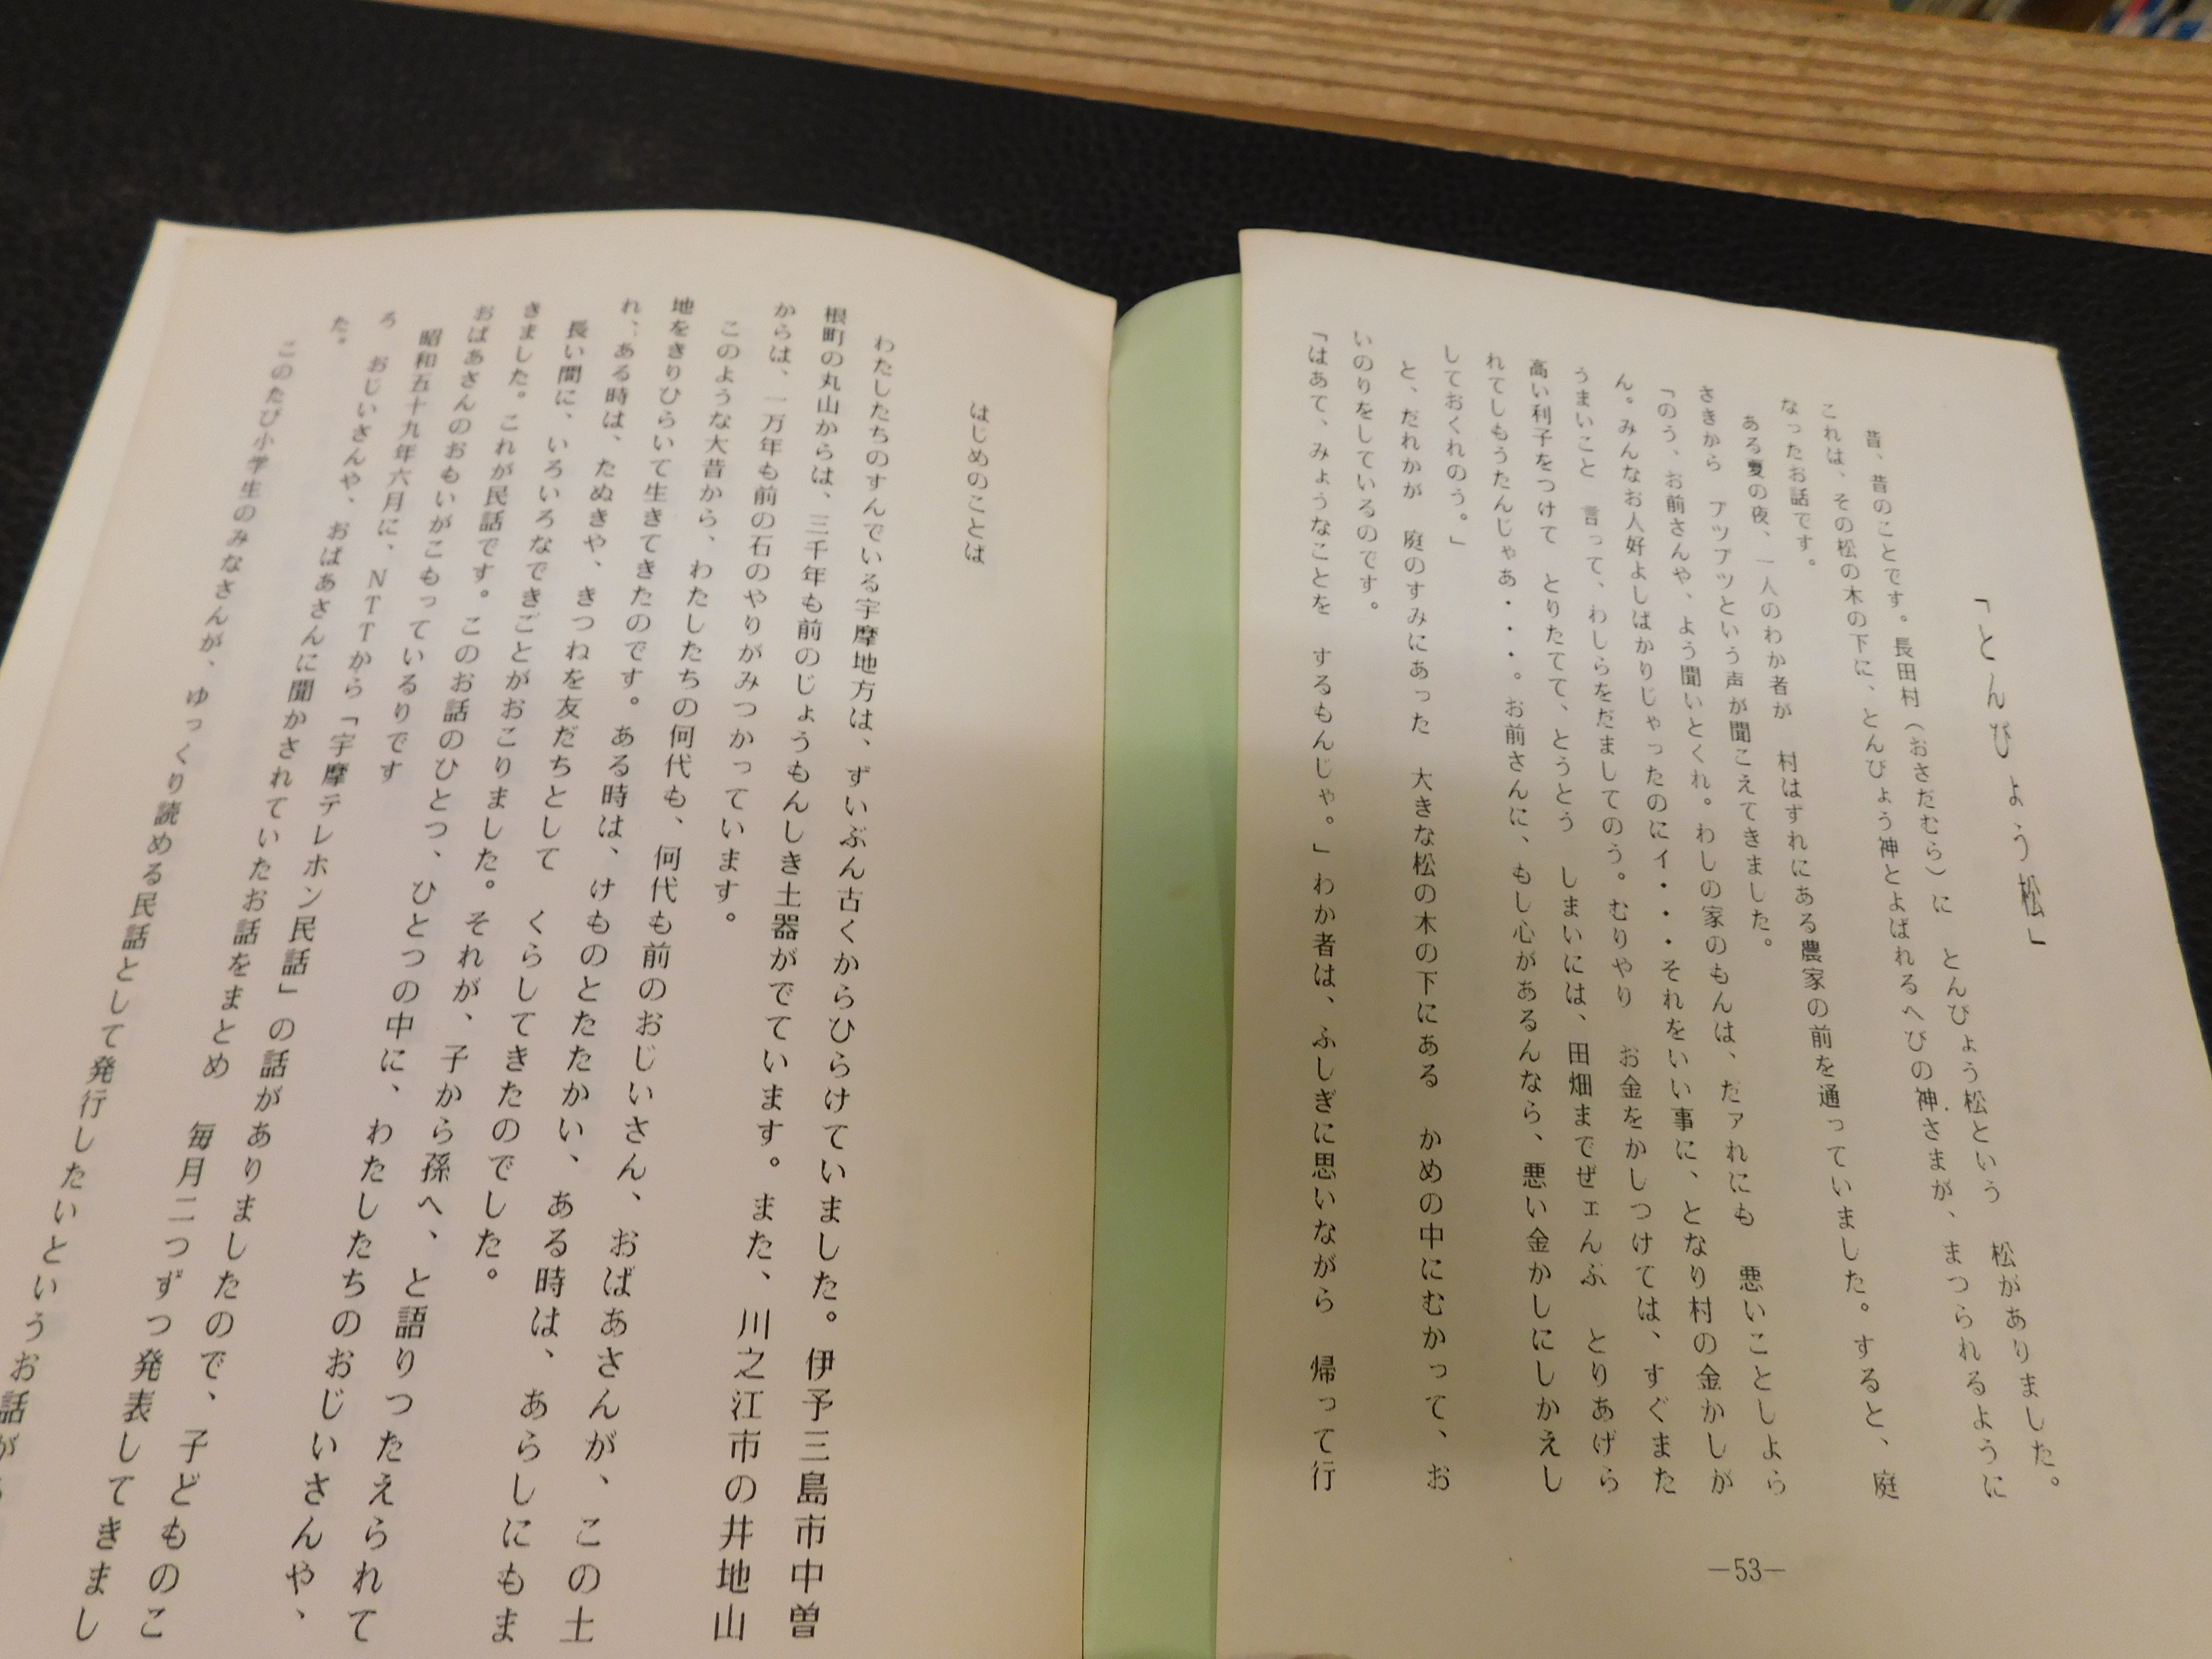 「とんびょう松」
昔、昔のことです。長田村（おさだむら）に　とんびょう松という　松がありました。
これは、その松の木の下に、とんびょう神とよばれるへびの神さまが、まつられるように
なったお話です。
ある夏の夜、一人のわか者が　村はずれにある農家の前を通っていました。すると、庭
さきから　ブツブツという声が聞こえてきました。
「のう、お前さんや、よう聞いとくれ。わしの家のもんは、だァれにも　悪いことしよら
ん。みんなお人好よしばかりじゃったのにイ・・・それをいい事に、となり村の金かしが
うまいこと　言って、わしらをだましてのう。むりやり　お金をかしつけては、すぐまた
高い利子をつけて　とりたてて、とうとう　しまいには、田畑までぜェんぶ　とりあげら
れてしもうたんじゃあ・・・。お前さんに、もし心があるんなら、悪い金かしにしかえし
しておくれのう。」
と、だれかが　庭のすみにあった　大きな松の木の下にある　かめの中にむかって、お
いのりをしているのです。
「はあて、みょうなことを　するもんじゃ。」わか者は、ふしぎに思いながら　帰って行
－53－
はじめのことは
わたしたちのすんでいる宇摩地方は、ずいぶん古くからひらけていました。伊予三島市中曽
根町の丸山からは、三千年も前のじょうもんしき土器がでています。また、川之江市の井地山
からは、一万年も前の石のやりがみつかっています。
このような大昔から、わたしたちの何代も、何代も前のおじいさん、おばあさんが、この土
地をきりひらいて生きてきたのです。ある時は、けものとたたかい、ある時は、あらしにもま
れ、ある時は、たぬきや、きつねを友だちとして　くらしてきたのでした。
長い間に、いろいろなできごとがおこりました。それが、子から孫へ、と語りつたえられて
きました。これが民話です。このお話のひとつ、ひとつの中に、わたしたちのおじいさんや、
おばあさんのおもいがこもっているりです
昭和五十九年六月に、NTTから「宇摩テレホン民話」の話がありましたので、子どものこ
ろ　おじいさんや、おばあさんに聞かされていたお話をまとめ　毎月二つずつ発表してきまし
た。
このたび小学生のみなさんが、ゆっくり読める民話として発行したいというお話が